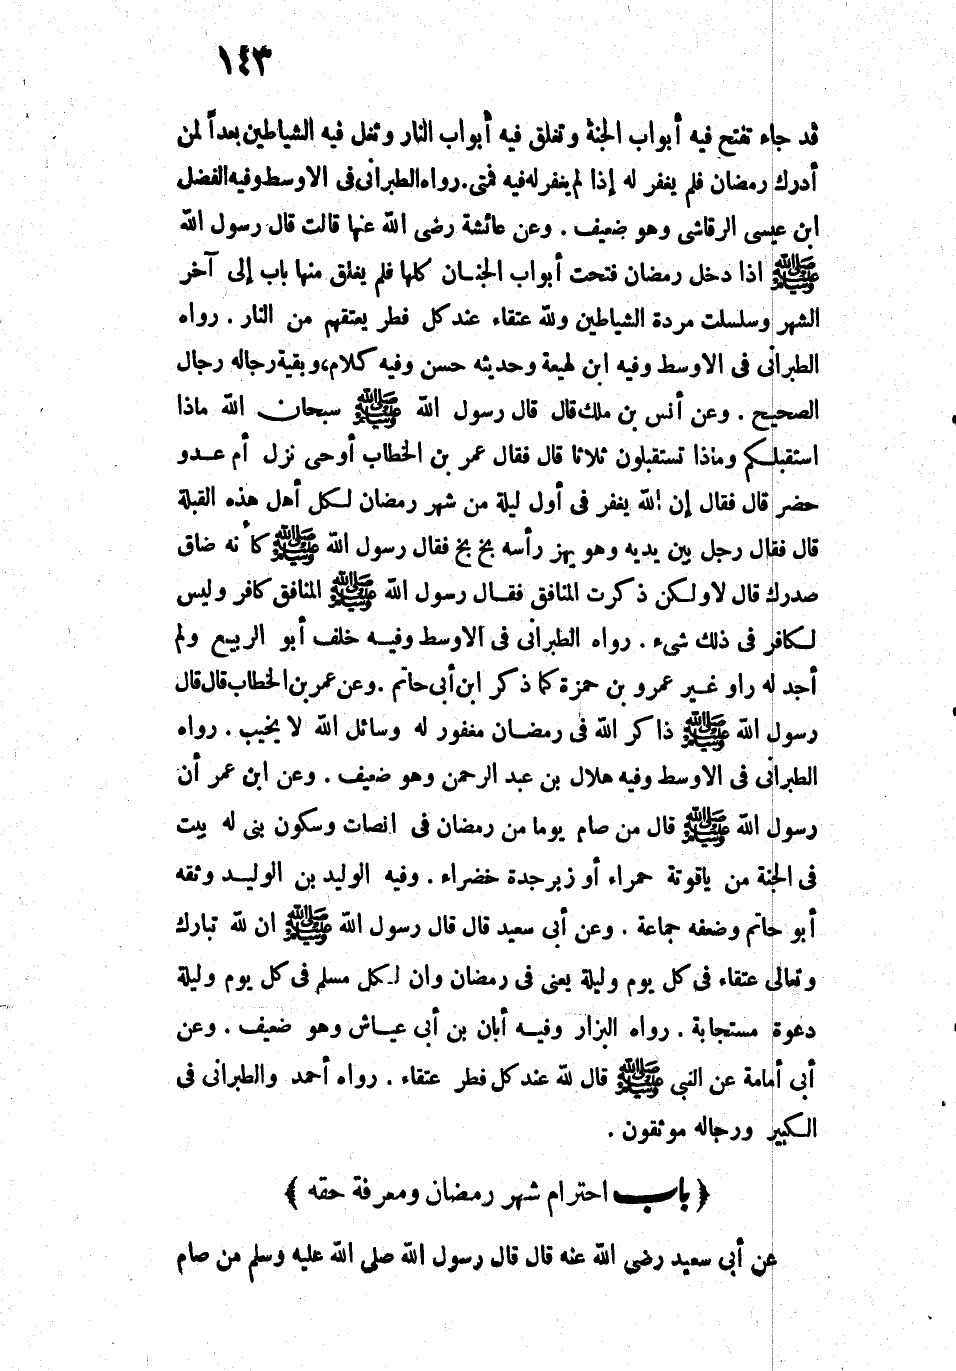 ١٤٣
قد جاء تفتح فيه أبواب الجنة وتغلق فيه أبواب النار وتغل فيه الشياطين بعداً لمن
أدرك رمضان فلم يغفر له إذا لم يغفر له فيه فمتى. رواه الطبرانى فى الاوسط وفيه الفضل
ابن عيسى الرقاشى وهو ضعيف . وعن عائشة رضى الله عنها قالت قال رسول الله
ﷺ اذا دخل رمضان فتحت أبواب الجنان كلها فلم يغلق منها باب إلى آخر
الشهر وسلسلت مردة الشياطين ولله عتقاء عند كل فطر يعتقهم من النار . رواه
الطبرانى فى الاوسط وفيه ابن لهيعة وحديثه حسن وفيه كلام، وبقية رجاله رجال
الصحيح . وعن أنس بن ملك قال قال رسول الله ﷺ سبحان الله ماذا
استقبلكم وماذا تستقبلون ثلاثا قال فقال عمر بن الخطاب أوحى نزل أم عدو
حضر قال فقال إن الله يغفر فى أول ليلة من شهر رمضان لكل أهل هذه القبلة
قال فقال رجل بين يديه وهو يهز رأسه بخ بخ فقال رسول الله ﷺ كأنه ضاق
صدرك قال لا ولكن ذكرت المنافق فقال رسول الله ﷺ المنافق كافر وليس
لكافر فى ذلك شىء . رواه الطبرانى فى الاوسط وفيه خلف أبو الربيع ولم
أجد له راو غير عمرو بن حمزة كما ذكر ابن أبى حاتم . وعن عمر بن الخطاب قال قال
رسول الله ﷺ ذاكر الله فى رمضان مغفور له وسائل الله لا يخيب . رواه
الطبرانى فى الاوسط وفيه هلال بن عبد الرحمن وهو ضعيف . وعن ابن عمر أن
رسول الله ﷺ قال من صام يوما من رمضان فى انصات وسكون بنى له بيت
فى الجنة من ياقوتة حمراء أو زبرجدة خضراء . وفيه الوليد بن الوليد وثقه
أبو حاتم وضعفه جماعة . وعن أبى سعيد قال قال رسول الله ﷺ ان لله تبارك
وتعالى عتقاء فى كل يوم وليلة يعنى فى رمضان وان لكل مسلم فى كل يوم وليلة
دعوة مستجابة . رواه البزار وفيه أبان بن أبى عياش وهو ضعيف . وعن
أبى أمامة عن النبى ﷺ قال لله عند كل فطر عتقاء . رواه أحمد والطبرانى فى
الكبير ورجاله موثقون .
﴿ باب احترام شهر رمضان ومعرفة حقه ﴾
عن أبى سعيد رضى الله عنه قال قال رسول الله صلى الله عليه وسلم من صام